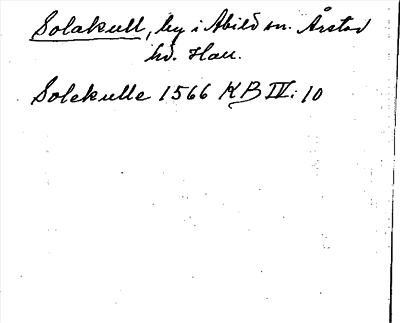 Solakull, by i Abild sn. Årstad
hd. Hall.
Solekulle 1566 KB IV: 10